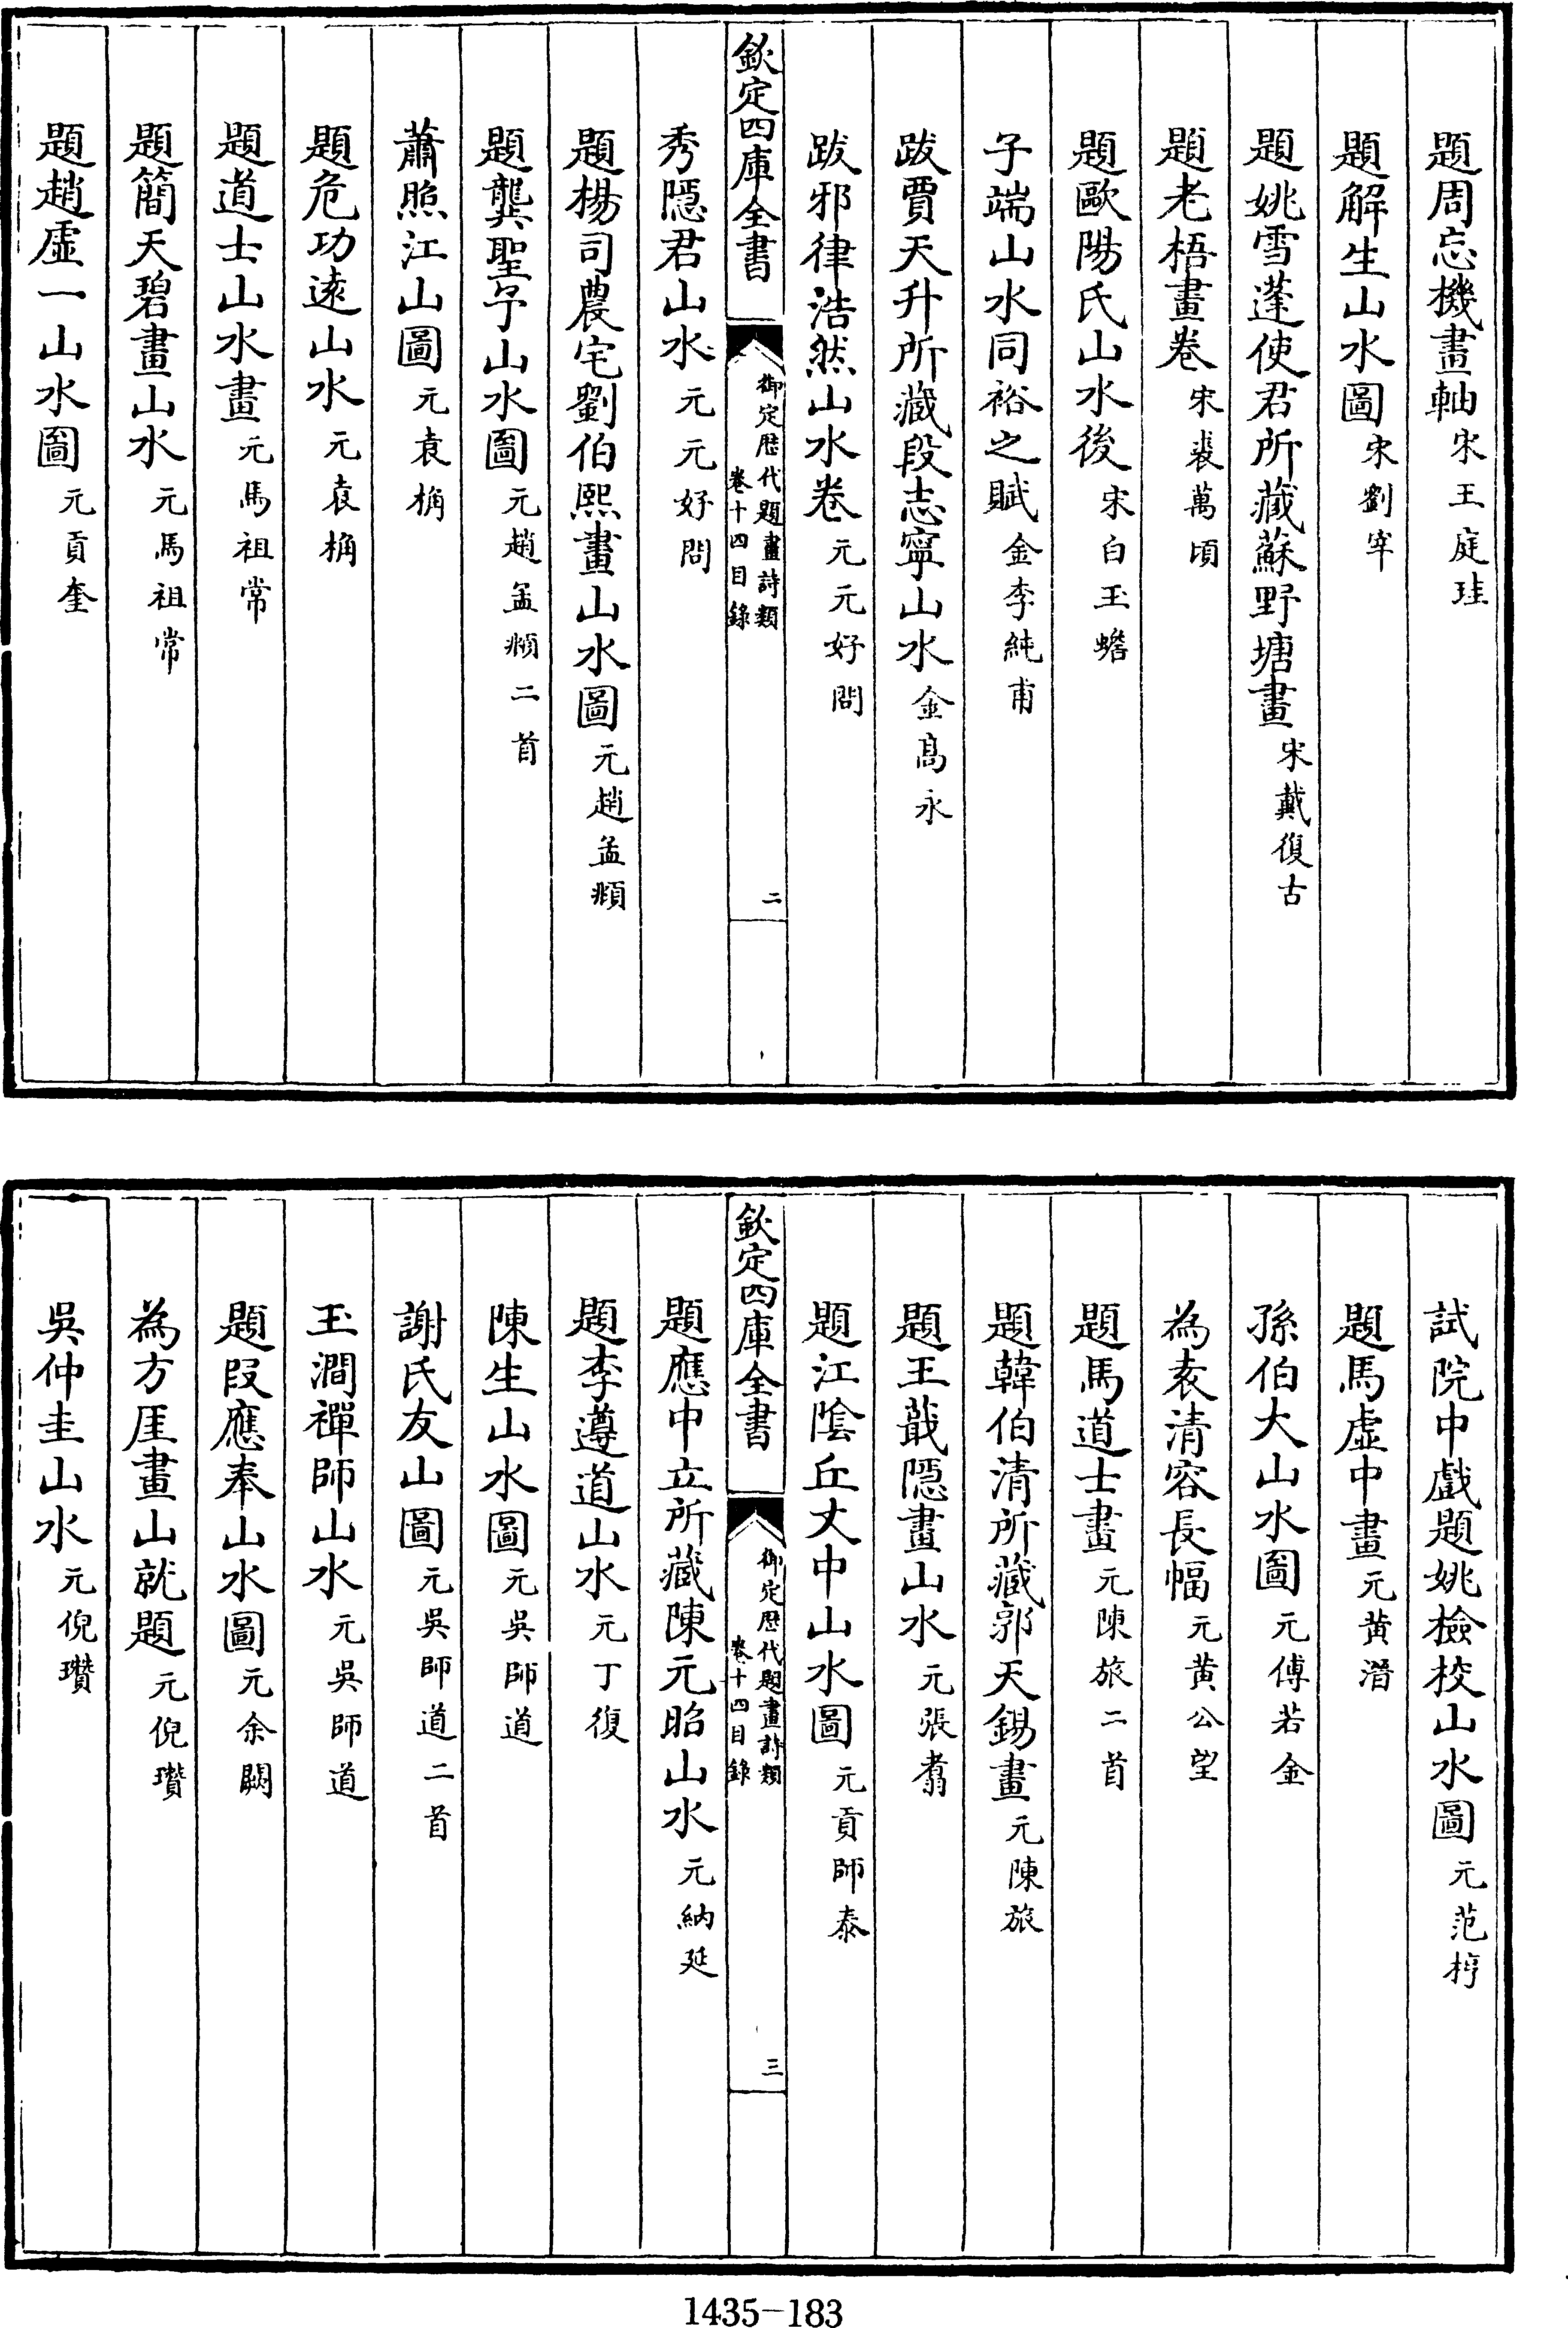 題周忘機畫軸宋王庭珪
題解生山水圖宋劉宰
題姚雪蓬使君所藏蘇野塘畫宋戴復古
題老梧畫卷宋裘萬頃
題歐陽氏山水後宋白玉蟾
子端山水同裕之賦金李純甫
跋賈天升所藏段志寧山水金高永
跋邪律浩然山水卷元元好問
欽定四庫全書
御定歷代題畫詩類
卷十四目錄
二
秀隱君山水元元好問
題楊司農宅劉伯熙畫山水圖元趙孟頫
題龔聖予山水圖元趙孟頫二首
蕭照江山圖元袁桷
題危功遠山水元袁桷
題道士山水畫元馬祖常
題簡天碧畫山水元馬祖常
題趙虛一山水圖元貢奎
試院中戲題姚檢校山水圖元范梈
題馬虛中畫元黃溍
孫伯大山水圖元傅若金
為袁清容長幅元黃公望
題馬道士畫元陳旅二首
題韓伯清所藏郭天錫畫元陳旅
題王蕺隱畫山水元張翥
題江陰丘文中山水圖元貢師泰
欽定四庫全書
御定歷代題畫詩類
卷十四目錄
三
題應中立所藏陳元昭山水元納延
題李遵道山水元丁復
陳生山水圖元吳師道
謝氏友山圖元吳師道二首
玉澗禪師山水元吳師道
題段應奉山水圖元余闕
為方厓畫山就題元倪瓚
吳仲圭山水元倪瓚
1435-183